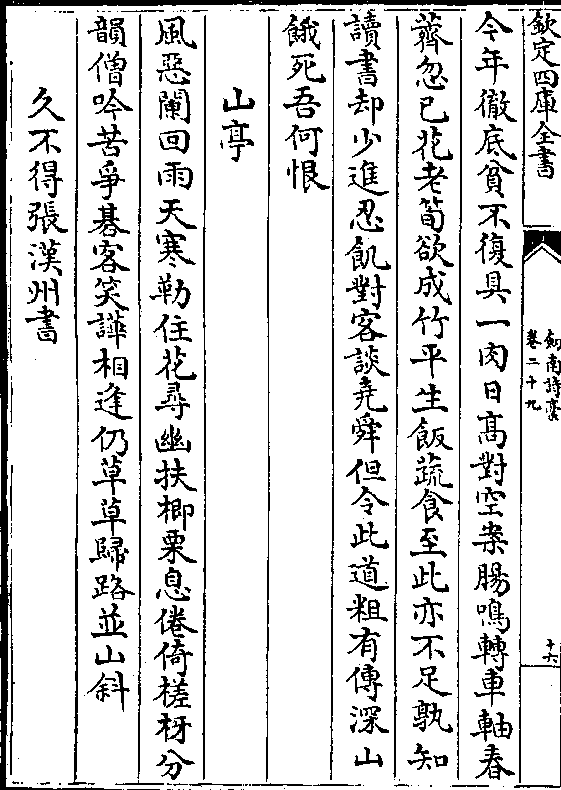 欽定四庫全書
劍南詩稾
卷二十九
十六
今年徹底貧不復具一肉日髙對空案腸鳴轉車軸春
薺忽已花老筍欲成竹平生飯蔬食至此亦不足孰知
讀書却少進忍飢對客談堯舜但令此道粗有傳深山
餓死吾何恨
山亭
風惡闌回雨天寒勒住花尋幽扶楖栗息倦倚槎枒分
韻僧吟苦爭棊客笑譁相逢仍草草歸路並山斜
久不得張漢州書